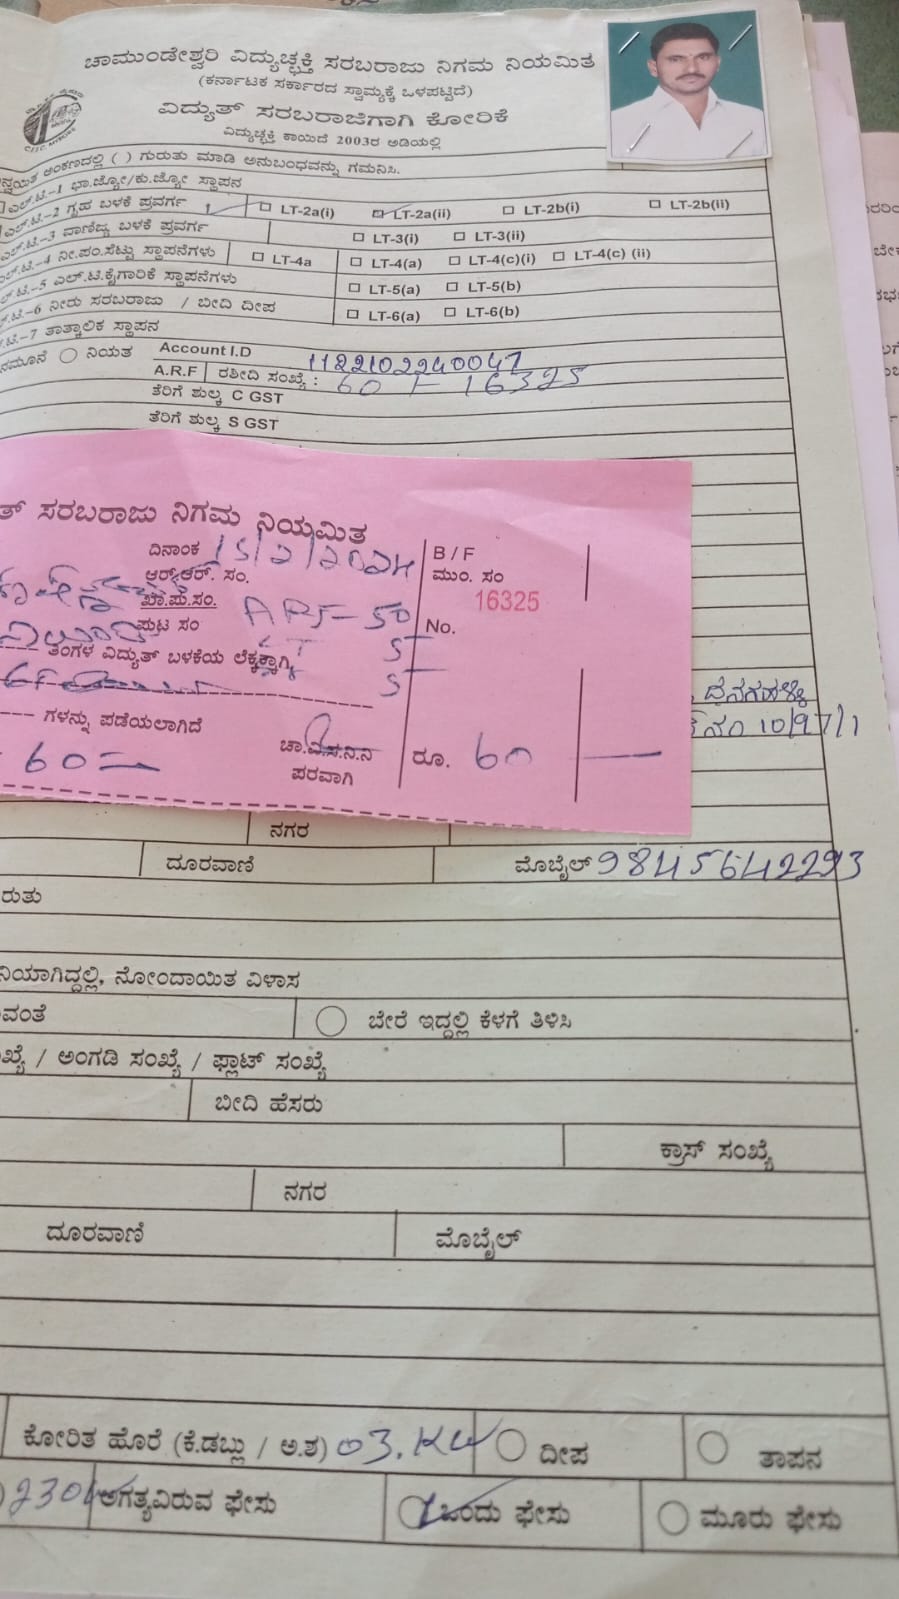 ಚಾಮುಂಡೇಶ್ವರಿ ವಿದ್ಯುಚ್ಛಕ್ತಿ ಸರಬರಾಜು ನಿಗಮ ನಿಯಮಿತ
(ಕರ್ನಾಟಕ ಸರ್ಕಾರದ ಸ್ವಾಮ್ಯಕ್ಕೆ ಒಳಪಟ್ಟಿದೆ)
ವಿದ್ಯುತ್ ಸರಬರಾಜಿಗಾಗಿ ಕೋರಿಕೆ
ವಿದ್ಯುಚ್ಛಕ್ತಿ ಕಾಯಿದೆ 2003ರ ಅಡಿಯಲ್ಲಿ
ಅಂಕಣದಲ್ಲಿ ( ) ಗುರುತು ಮಾಡಿ ಅನುಬಂಧವನ್ನು ಗಮನಿಸಿ.
ಎಲ್.ಟಿ.-1 ಭಾ.ಜ್ಯೋ/ಕು.ಜ್ಯೋ ಸ್ಥಾಪನ
ಎಲ್.ಟಿ.-2 ಗೃಹ ಬಳಕೆ ಪ್ರವರ್ಗ LT-2a(i) LT-2a(ii) LT-2b(i) LT-2b(ii)
ಎಲ್.ಟಿ.-3 ವಾಣಿಜ್ಯ ಬಳಕೆ ಪ್ರವರ್ಗ LT-3(i) LT-3(ii)
ಎಲ್.ಟಿ.-4 ನೀ.ಪಂ.ಸೆಟ್ಟು ಸ್ಥಾಪನೆಗಳು LT-4a LT-4(a) LT-4(c)(i) LT-4(c) (ii)
ಲ್.ಟಿ.-5 ಎಲ್.ಟಿ.ಕೈಗಾರಿಕೆ ಸ್ಥಾಪನೆಗಳು LT-5(a) LT-5(b)
ಲ್.ಟಿ.-6 ನೀರು ಸರಬರಾಜು / ಬೀದಿ ದೀಪ LT-6(a) LT-6(b)
ಲ್.ಟಿ.-7 ತಾತ್ಕಾಲಿಕ ಸ್ಥಾಪನ
ನಮೂನೆ ನಿಯತ Account I.D 1182102240047
A.R.F ರಶೀದಿ ಸಂಖ್ಯೆ : 60 - 16325
ತೆರಿಗೆ ಶುಲ್ಕ C GST
ತೆರಿಗೆ ಶುಲ್ಕ S GST
ತ್ ಸರಬರಾಜು ನಿಗಮ ನಿಯಮಿತ
ದಿನಾಂಕ 15/2/2024 B / F
ಆರ್.ಆರ್. ಸಂ. ಮುಂ. ಸಂ
ಖಾ.ಪು.ಸಂ. 16325
ಪುಟ ಸಂ ARF- 50 No.
ತಿಂಗಳ ವಿದ್ಯುತ್ ಬಳಕೆಯ ಲೆಕ್ಕಕ್ಕಾಗಿ
ಗಳನ್ನು ಪಡೆಯಲಾಗಿದೆ
60 ಚಾ.ವಿ.ಸ.ನಿ.ನಿ ರೂ. 60
ಪರವಾಗಿ
10/97/1
ನಗರ
ದೂರವಾಣಿ ಮೊಬೈಲ್ 9845642293
ರುತು
ನಿಯಾಗಿದ್ದಲ್ಲಿ, ನೋಂದಾಯಿತ ವಿಳಾಸ
ವಂತೆ ಬೇರೆ ಇದ್ದಲ್ಲಿ ಕೆಳಗೆ ತಿಳಿಸಿ
ಖ್ಯೆ / ಅಂಗಡಿ ಸಂಖ್ಯೆ / ಫ್ಲಾಟ್ ಸಂಖ್ಯೆ
ಬೀದಿ ಹೆಸರು
ಕ್ರಾಸ್ ಸಂಖ್ಯೆ
ನಗರ
ದೂರವಾಣಿ ಮೊಬೈಲ್
ಕೋರಿತ ಹೊರೆ (ಕೆ.ಡಬ್ಲು / ಅ.ಶ) 03.KW ದೀಪ ತಾಪನ
230V ಅಗತ್ಯವಿರುವ ಫೇಸು ಒಂದು ಫೇಸು ಮೂರು ಫೇಸು